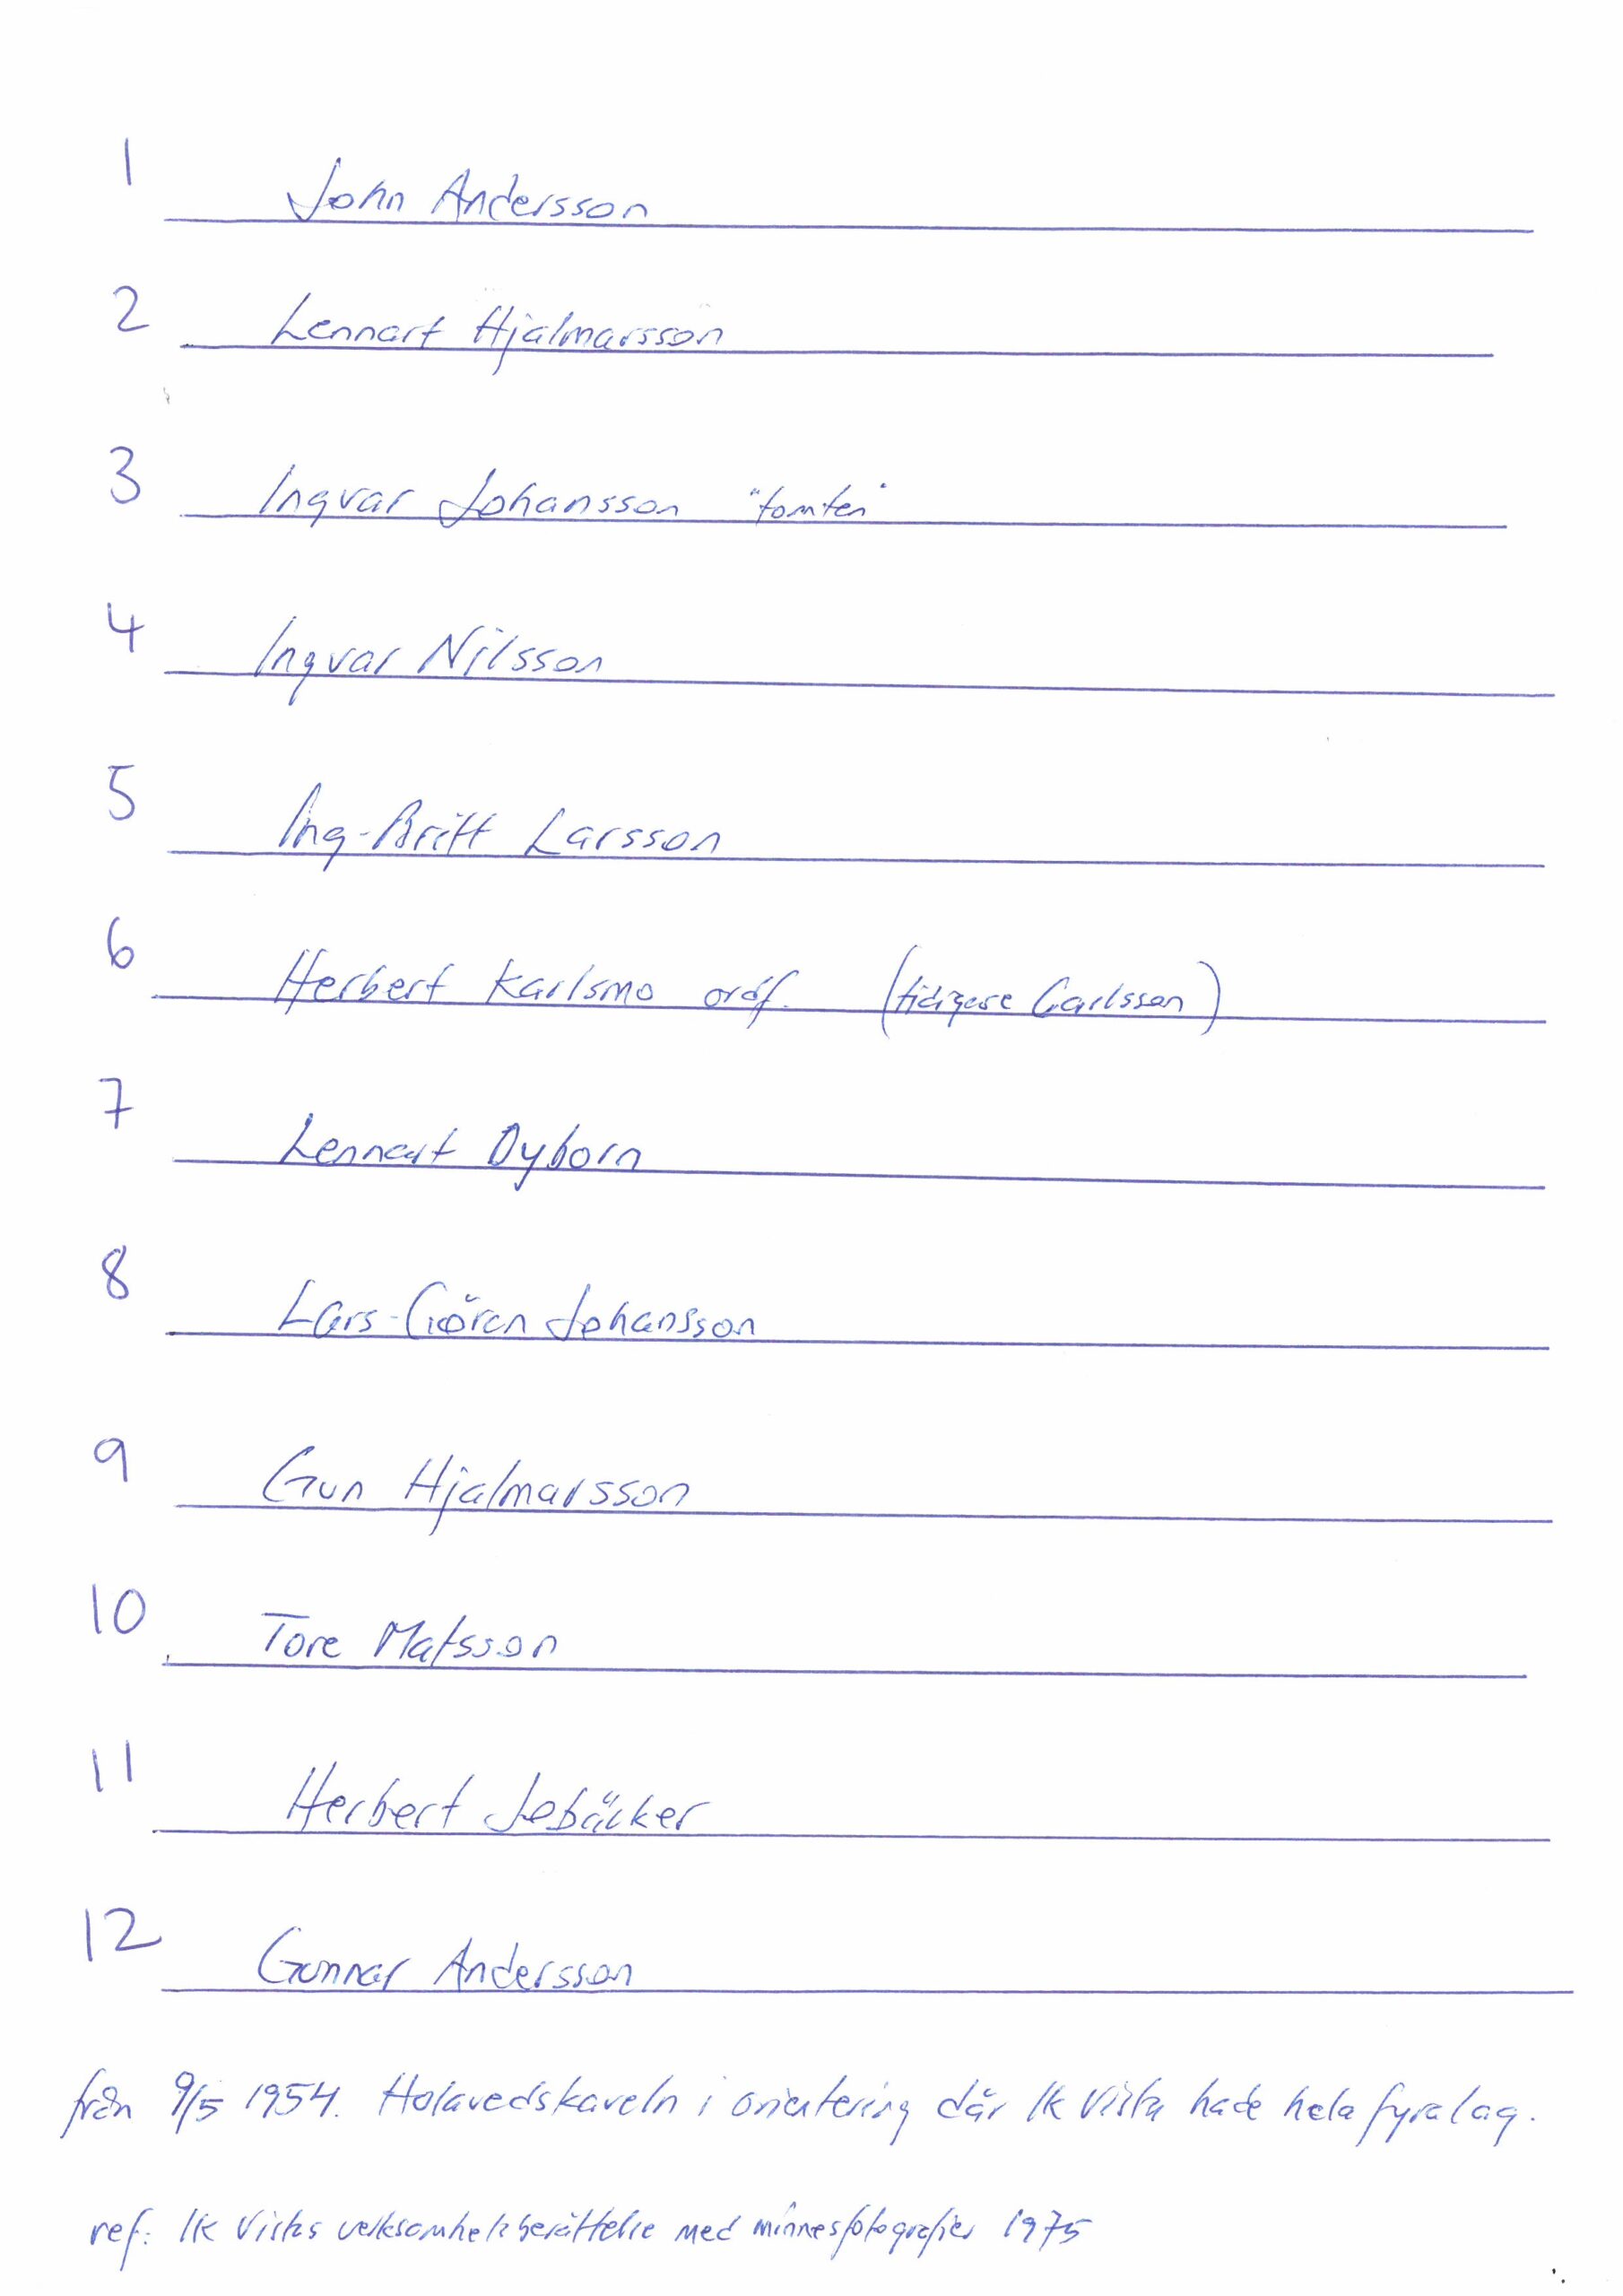 1 John Andersson
2 Lennart Hjalmarsson
3 Ingvar Johansson "tomten"
4 Ingvar Nilsson
5 Ing-Britt Larsson
6 Herbert Karlsmo ordf. (tidigare Carlsson)
7 Lennart Dyborn
8 Lars-Göran Johansson
9 Gun Hjalmarsson
10 Tore Matsson
11 Herbert Jebäcker
12 Gunnar Andersson
från 9/5 1954. Holavedskaveln i orientering där IK Vista hade hela fyra lag.
ref: IK Vistas verksamhetsberättelse med minnesfotografier 1975